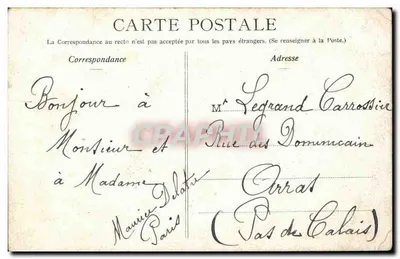 CARTE POSTALE
La Correspondance au recto n'est pas acceptée par tous les pays étrangers. (Se renseigner à la Poste.)
Correspondance
Bonjour à
Monsieur et
à Madame
Maurice Delatre
Paris
Adresse
Mr Legrand Carrossier
Rue des Dominicain
Arras
(Pas de Calais)
CPAPHIL